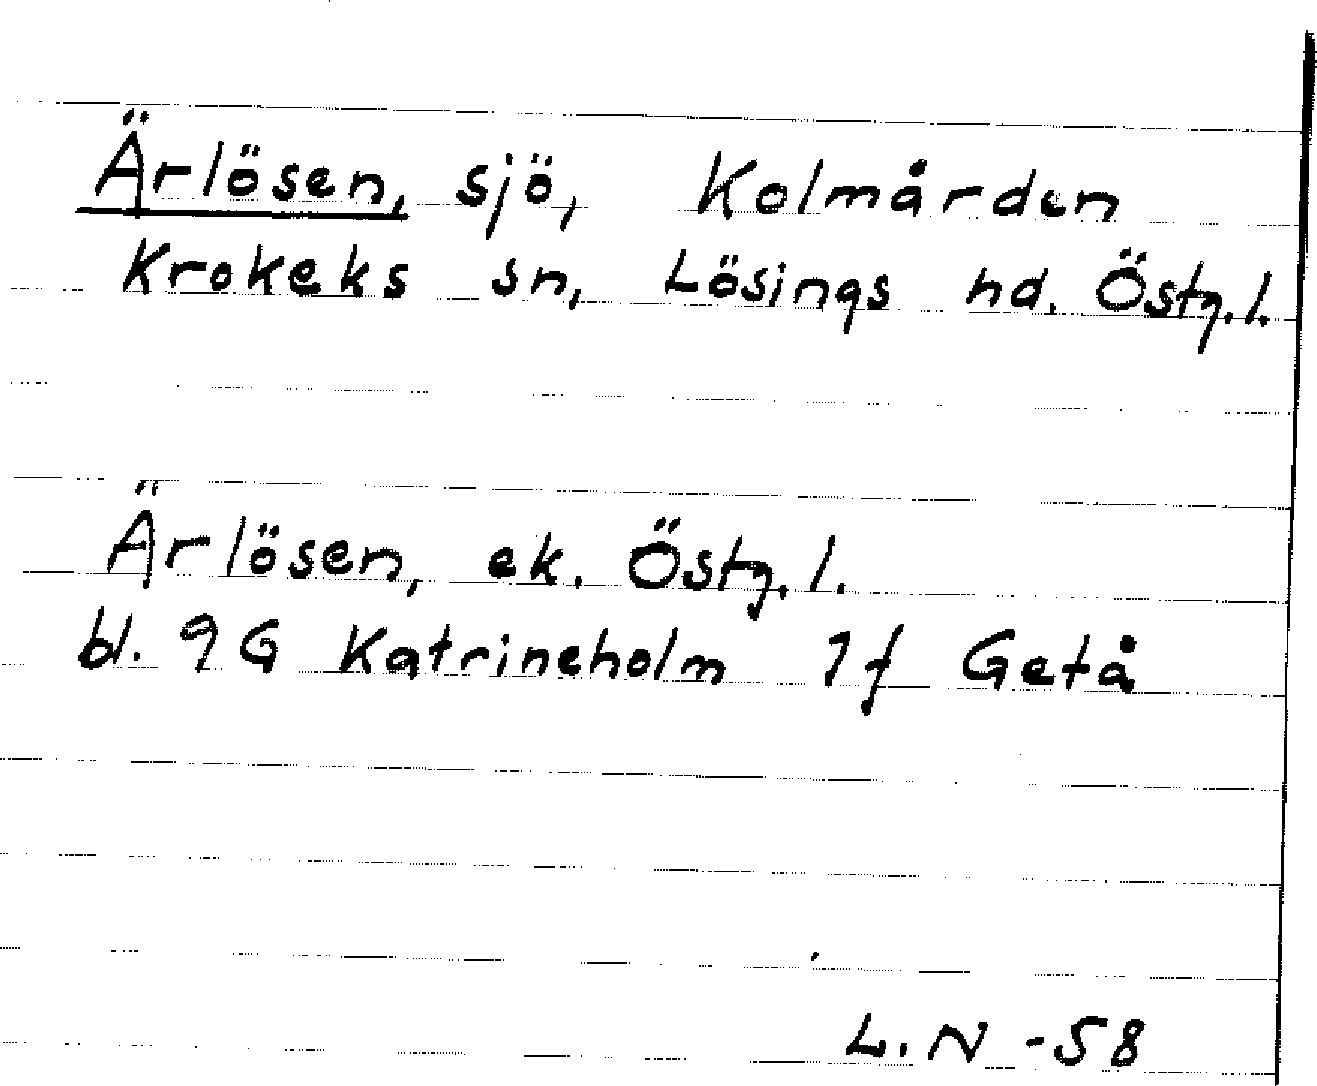 Ärlösen, sjö, Kolmården
Krokeks sn, Lösings hd. Östg.l.
Ärlösen, ek. Östg.l.
bl. 9G Katrineholm 1f Getå
L.N -58